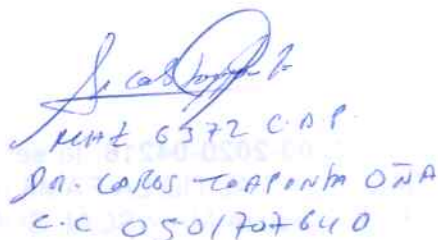 MAT 6372 C.A.P.
DR. CARLOS TOAPANTA OÑA
C.C 0501707640